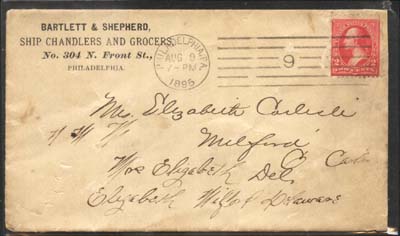 BARTLETT & SHEPHERD,
SHIP CHANDLERS AND GROCERS,
No. 304 N. Front St.,
PHILADELPHIA.
PHILADELPHIA, PA.
AUG 9
7-PM
1895
9
2 2
Elizabeth Carlisle
Milford
Mrs Elizabeth Del.
Elizabeth Delaware